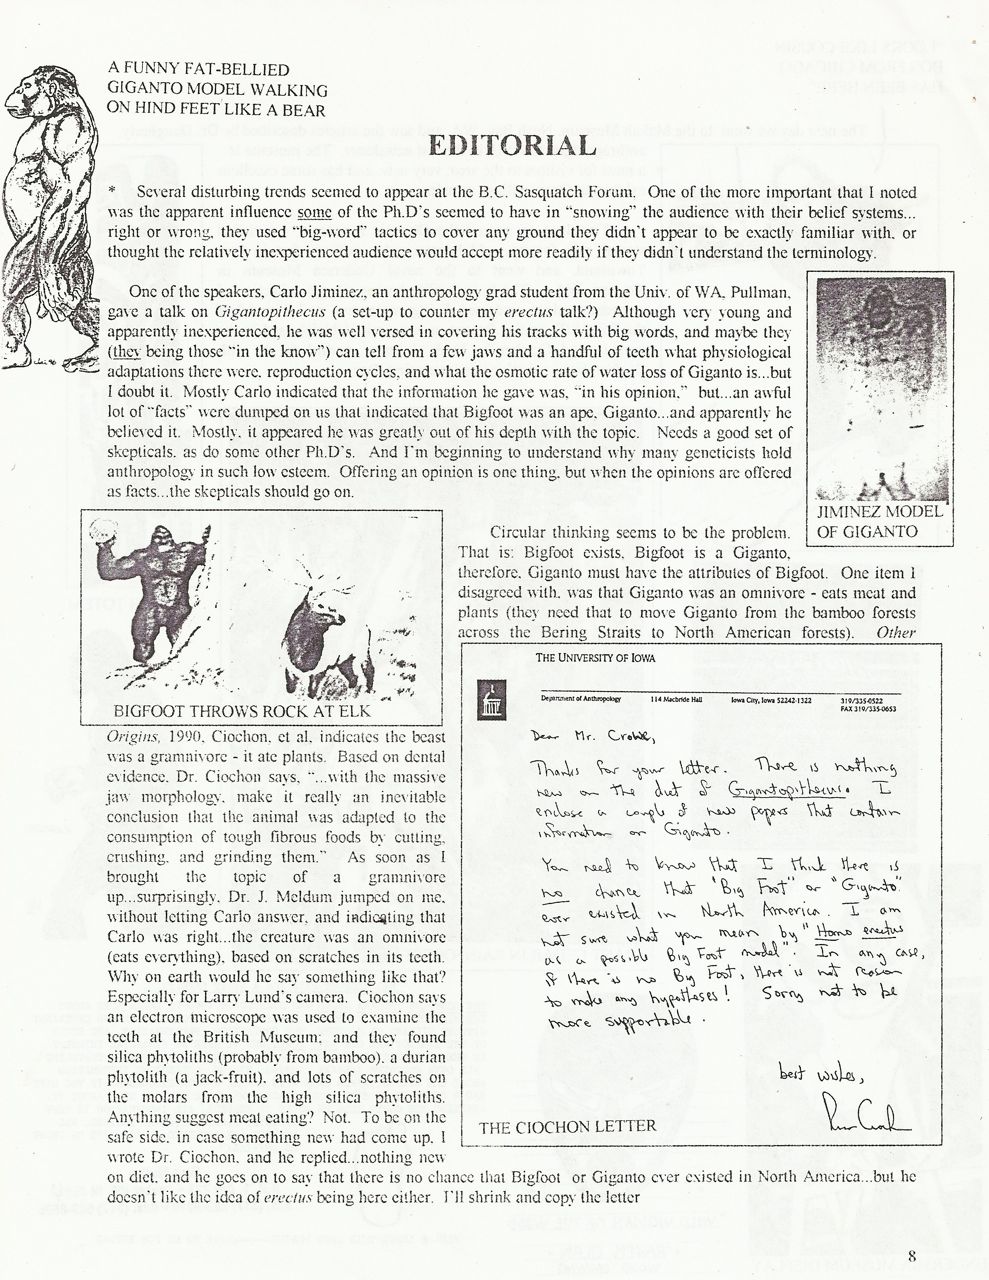 A FUNNY FAT-BELLIED
GIGANTO MODEL WALKING
ON HIND FEET LIKE A BEAR
EDITORIAL
* Several disturbing trends seemed to appear at the B.C. Sasquatch Forum. One of the more important that I noted
was the apparent influence some of the Ph.D's seemed to have in “snowing” the audience with their belief systems...
right or wrong, they used “big-word” tactics to cover any ground they didn't appear to be exactly familiar with, or
thought the relatively inexperienced audience would accept more readily if they didn't understand the terminology.
One of the speakers, Carlo Jiminez, an anthropology grad student from the Univ. of WA, Pullman,
gave a talk on Gigantopithecus (a set-up to counter my erectus talk?) Although very young and
apparently inexperienced, he was well versed in covering his tracks with big words, and maybe they
(they being those “in the know”) can tell from a few jaws and a handful of teeth what physiological
adaptations there were, reproduction cycles, and what the osmotic rate of water loss of Giganto is...but
I doubt it. Mostly Carlo indicated that the information he gave was, “in his opinion,” but...an awful
lot of “facts” were dumped on us that indicated that Bigfoot was an ape, Giganto...and apparently he
believed it. Mostly, it appeared he was greatly out of his depth with the topic. Needs a good set of
skepticals, as do some other Ph.D's. And I'm beginning to understand why many geneticists hold
anthropology in such low esteem. Offering an opinion is one thing, but when the opinions are offered
as facts...the skepticals should go on.
JIMINEZ MODEL
OF GIGANTO
Circular thinking seems to be the problem.
That is: Bigfoot exists, Bigfoot is a Giganto,
therefore, Giganto must have the attributes of Bigfoot. One item I
disagreed with, was that Giganto was an omnivore - eats meat and
plants (they need that to move Giganto from the bamboo forests
across the Bering Straits to North American forests). Other
BIGFOOT THROWS ROCK AT ELK
Origins, 1990, Ciochon, et al, indicates the beast
was a gramnivore - it ate plants. Based on dental
evidence, Dr. Ciochon says, “...with the massive
jaw morphology, make it really an inevitable
conclusion that the animal was adapted to the
consumption of tough fibrous foods by cutting,
crushing, and grinding them.” As soon as I
brought the topic of a gramnivore
up...surprisingly, Dr. J. Meldum jumped on me,
without letting Carlo answer, and indicating that
Carlo was right...the creature was an omnivore
(eats everything), based on scratches in its teeth.
Why on earth would he say something like that?
Especially for Larry Lund's camera. Ciochon says
an electron microscope was used to examine the
teeth at the British Museum; and they found
silica phytoliths (probably from bamboo), a durian
phytolith (a jack-fruit), and lots of scratches on
the molars from the high silica phytoliths.
Anything suggest meat eating? Not. To be on the
safe side, in case something new had come up, I
wrote Dr. Ciochon, and he replied...nothing new
on diet, and he goes on to say that there is no chance that Bigfoot or Giganto ever existed in North America...but he
doesn't like the idea of erectus being here either. I'll shrink and copy the letter
THE UNIVERSITY OF IOWA
Department of Anthropology 114 Macbride Hall Iowa City, Iowa 52242-1322 319/335-0522
FAX 319/335-0653
Dear Mr. Crowe,
Thanks for your letter. There is nothing
new on the diet of Gigantopithecus. I
enclose a couple of new papers that contain
information on Giganto.
You need to know that I think there is
no chance that "Big Foot" or "Giganto"
ever existed in North America. I am
not sure what you mean by "Homo erectus
as a possible Big Foot model". In any case,
if there is no Big Foot, there is not reason
to make any hypotheses! Sorry not to be
more supportable.
best wishes,
THE CIOCHON LETTER
8